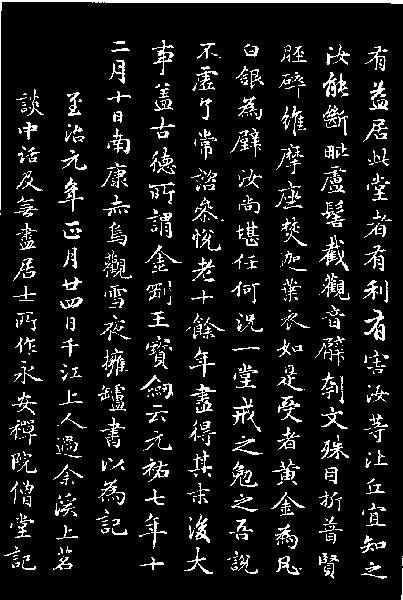 有益居此堂者有利有害汝等比丘宜知之
汝能斷毗盧髻截觀音臂刳文殊目折普賢
脛碎維摩座焚迦葉衣如是受者黃金為瓦
白銀為壁汝尚堪任何況一堂戒之勉之吾說
不虛了常諮參悅老十餘年盡得其末後大
事蓋古德所謂金剛王寶劍云元祐七年十
二月十日南康赤烏觀雪夜擁罏書以為記
至治元年正月廿四日千江上人過余溪上茗
談中話及無盡居士所作永安禪院僧堂記